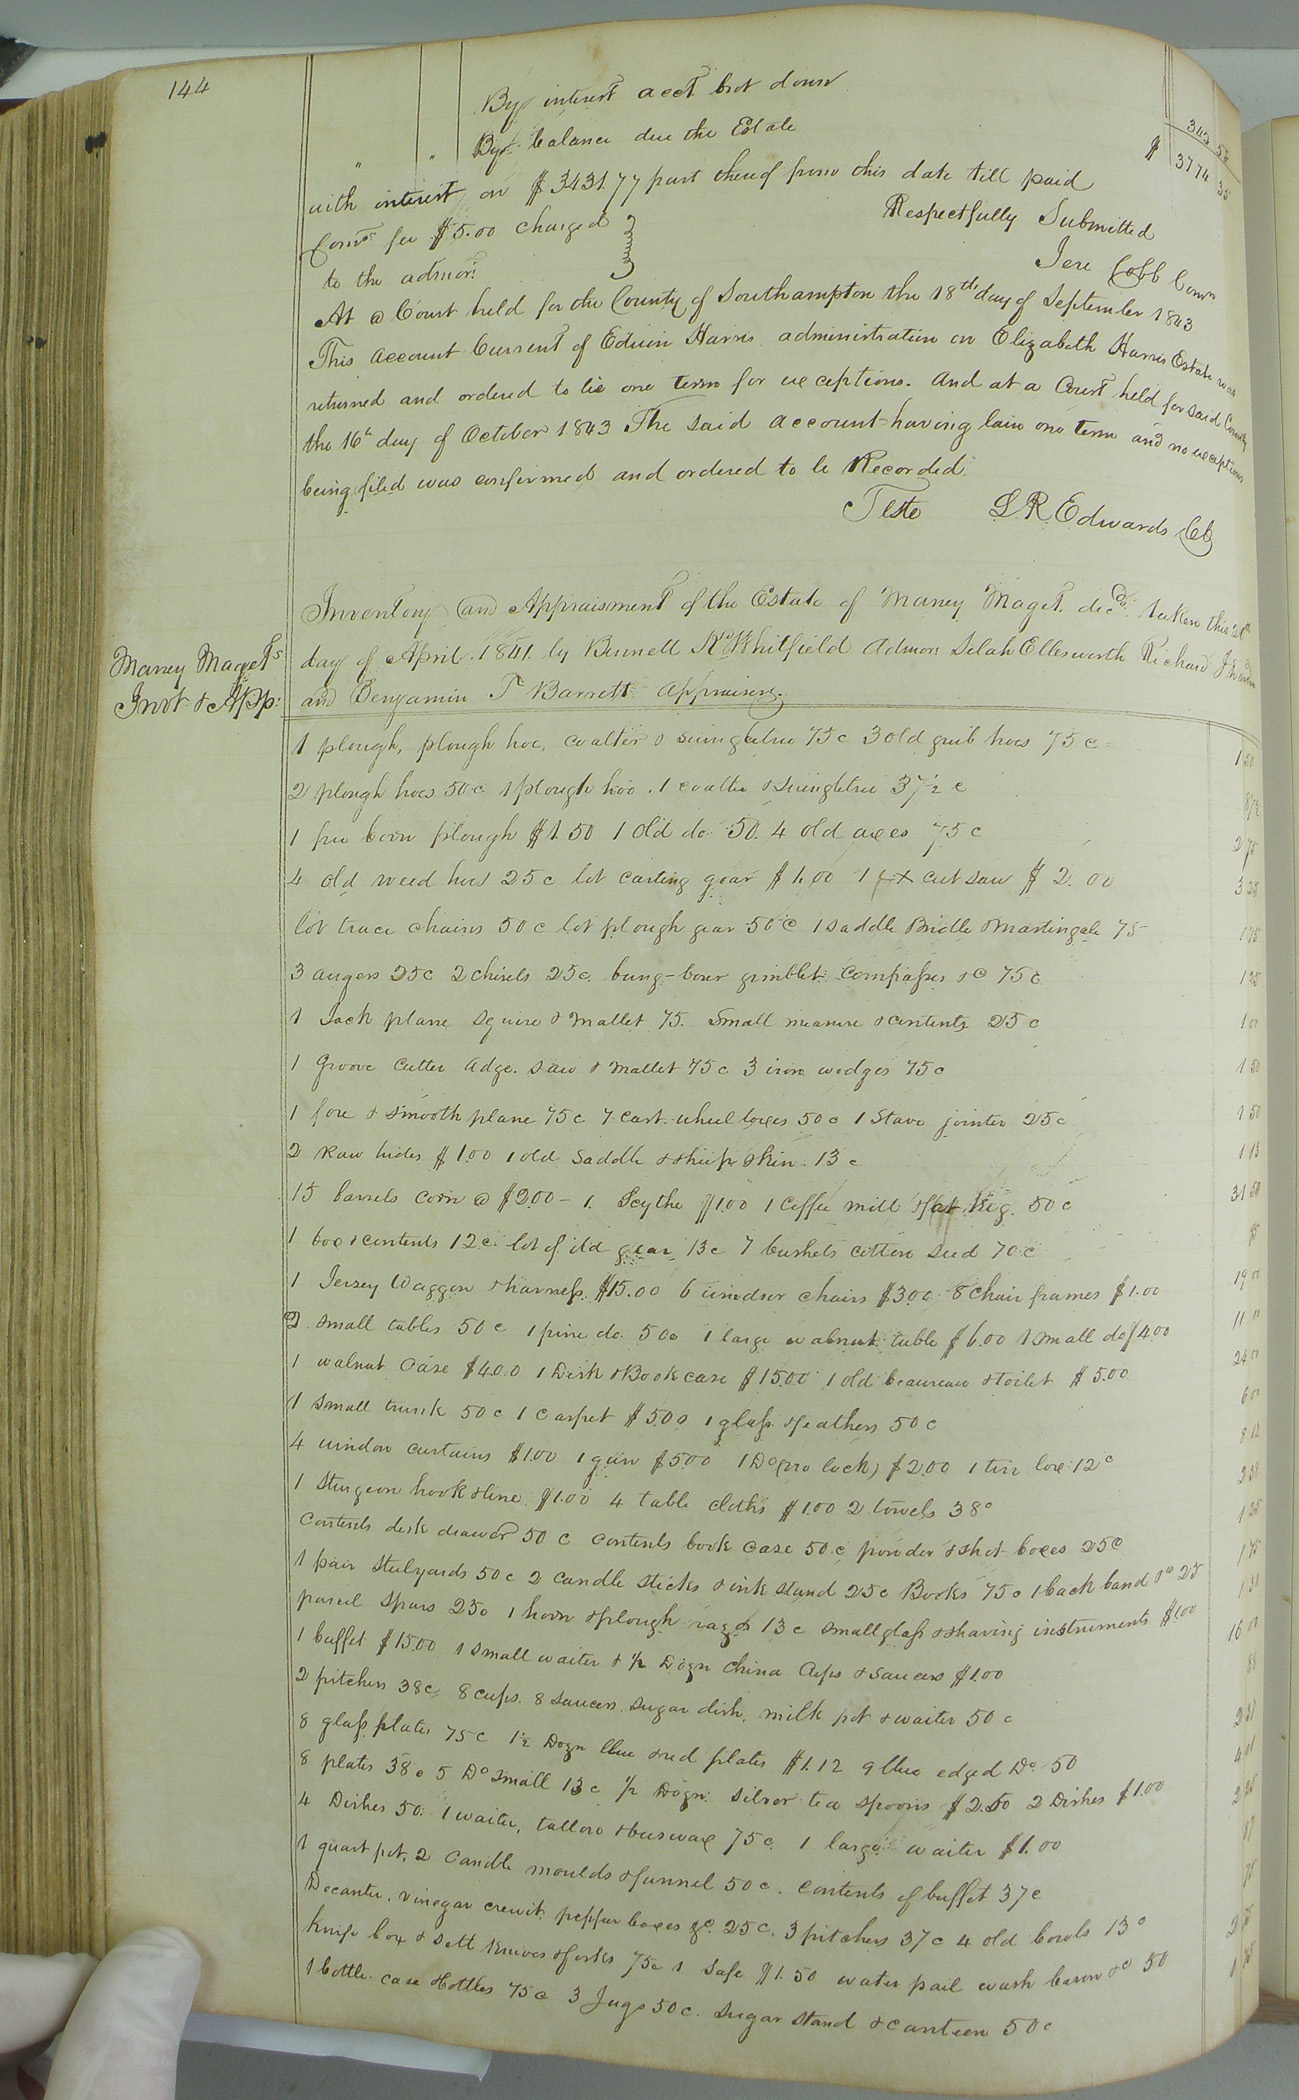 144
By interest acct brot down 343 58
" " By balance due the Estate $ 3774 35
with interest on $3431.77 part thereof from this date till paid
Respectfully Submitted
Comrs fee $5.00 charged
to the admor:
Jere Cobb Comr
At a Court held for the County of Southampton the 18th day of September 1843
This Account Current of Edwin Harris administration on Elizabeth Harris Estate was
returned and ordered to lie one term for exceptions. And at a Court held for said County
the 16th day of October 1843 The said account having lain one term and no exceptions
being filed was confirmed and ordered to be Recorded.
Teste L R Edwards Clk
Maney Magets
Invt. & App:
Inventory and Appraisment of the Estate of Maney Maget decd. taken this
day of April 1841 by Bennell Whitfield Admor Selah Ellesworth Richard J
and Benjamin T Barrett Appraisers.
1 plough, plough hoe, coalter & swingletree 75c 3 old grub hoes 75c 1 50
2 plough hoes 50c 1 plough hoe. 1 coalter & swingletree 37½ c 87½
1 free born plough $1.50 1 old do 50. 4 old axes 75c 2 75
4 old weed hoes 25c lot carting gear $1.00 1 X cut saw $2.00 3 25
lot trace chains 50c lot plough gear 50c 1 saddle Bridle & Martingale 75 1 75
3 augers 25c 2 chisels 25c. bung-borer gimblet Compasses &c 75c 1 25
1 Jack plane Squire & Mallet 75. Small measure & contents 25c 1 00
1 Groove Cutter Adge. saw & Mallet 75c 3 iron wedges 75c 1 50
1 fore & smooth plane 75c 7 cart wheel boxes 50c 1 Stave jointer 25c 1 50
2 Raw hides $1.00 1 old Saddle & sheep skin 13c 1 13
15 barrels corn @ $2.00 - 1. Scythe $1.00 1 Coffee mill & fat Keg. 50c 31 50
1 box & contents 12c lot of old gear 13c 7 bushels cotton seed 70c 95
1 Jersey Waggon & harness $15.00 6 windsor chairs $3.00 8 chair frames $1.00 19 00
2 small tables 50c 1 pine do. 50c 1 large walnut table $6.00 1 small do $4.00 11 00
1 walnut Case $4.00 1 Desk & Book case $15.00 1 old beaureau & toilet $5.00 24 00
1 small trunk 50c 1 carpet $5.00 1 glass & feathers 50c 6 00
4 window curtains $1.00 1 gun $5.00 1 Do (no lock) $2.00 1 tin box 12c 8 12
1 Sturgeon hook & line $1.00 4 table cloths $1.00 2 towels 38c 2 38
Contents desk drawer 50c contents book case 50c powder & shot boxes 25c 1 25
1 pair Steelyards 50c 2 candle sticks & ink stand 25c Books 75c 1 back band &c 25 1 75
parcel Spurs 25c 1 horn & plough rages 13c small glass & shaving instruments $1.00 1 38
1 buffet $15.00 1 small waiter & ½ Dozn china Cups & saucers $1.00 16 00
2 pitchers 38c 8 cups. 8 saucers. sugar dish, milk pot & waiter 50c 88
8 glass plates 75c 1½ Dozn blue & red plates $1.12 9 blue edged Do. 50 2 37
8 plates 38c 5 Do small 13c ½ Dozn. Silver tea spoons $2.50 2 Dishes $1.00 4 01
4 Dishes 50. 1 waiter, tallow & beeswax 75c. 1 large waiter $1.00 2 25
1 quart pot. 2 Candle moulds & funnel 50c. Contents of buffet 37c 87
Decanter, vinegar creuit, pepper boxes &c. 25c. 3 pitchers 37c 4 old bowls 13c 75
Knife box & Sett Knives & forks 75c 1 Safe $1.50 water pail wash bason &c 50 2 75
1 bottle case & bottles 75c 3 Jugs 50c. Sugar Stand & canteen 50c 1 75